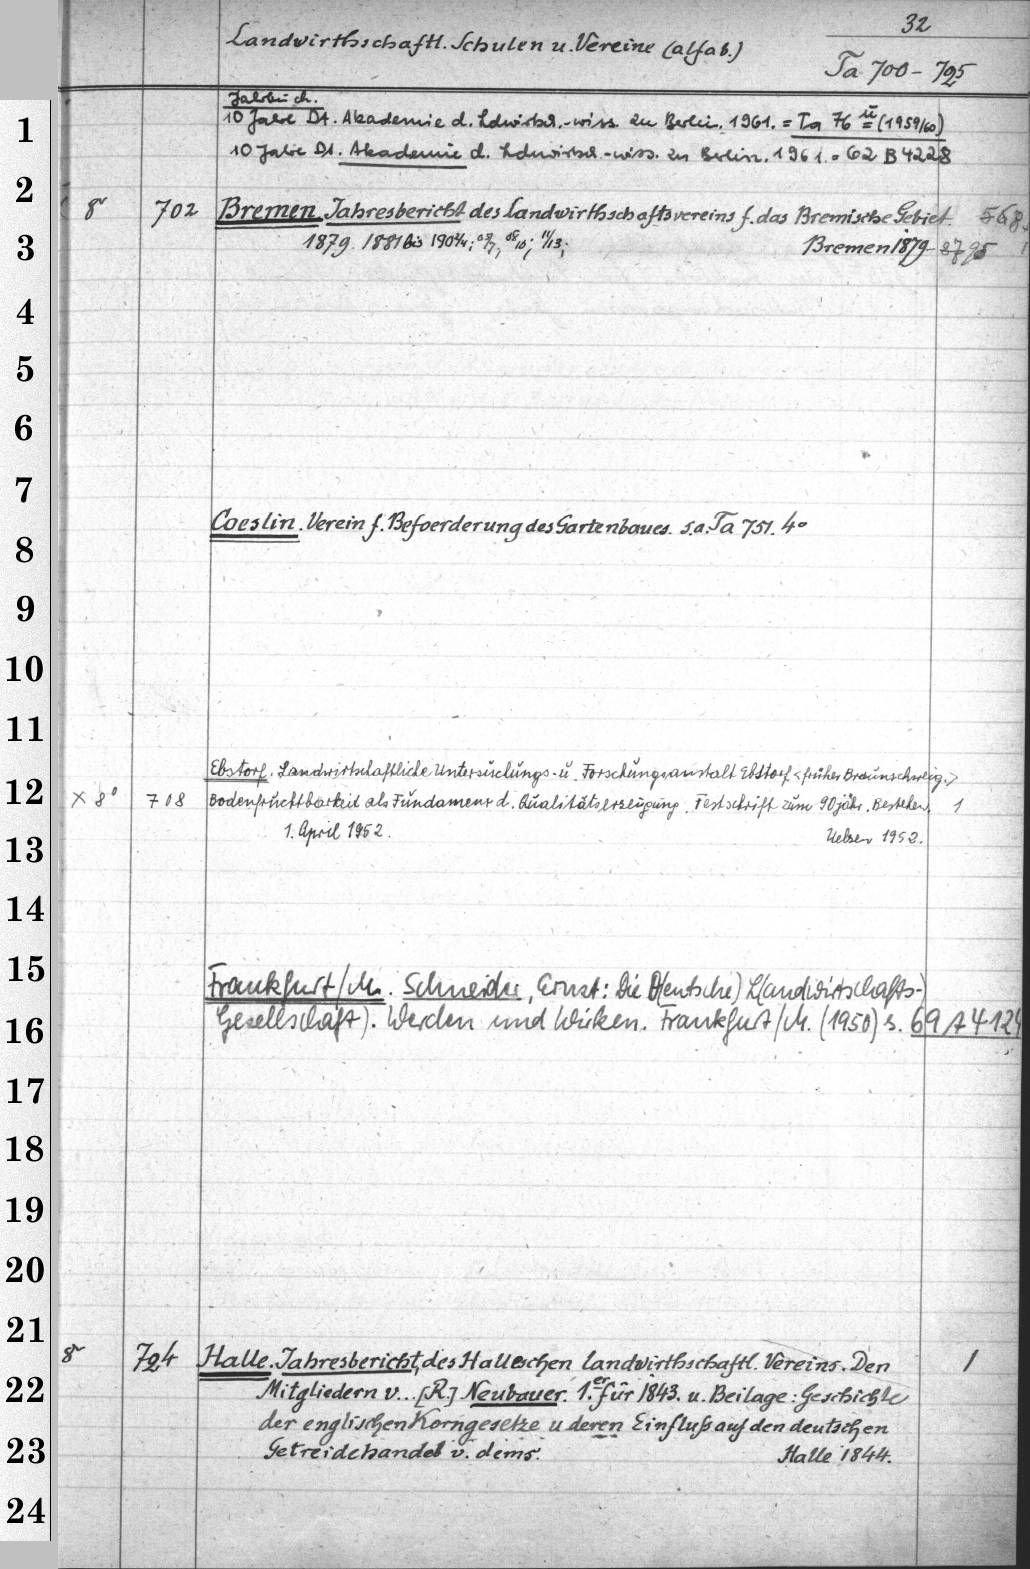 32
Landwirthschaftl. Schulen u. Vereine (alfab.)
Ta 700 - 795
Jahrbuch.
1
10 Jahre Dt. Akademie d. Ldwirtsch.-wiss. zu Berlin. 1961. = Ta 76 ü (1959/60)
10 Jahre Dt. Akademie d. Ldwirtsch.-wiss. zu Berlin. 1961. = 62 B 4228
2
8° 702 Bremen. Jahresbericht des Landwirthschaftsvereins f. das Bremische Gebiet. 568
3
1879. 1881 bis 1902/4; 11/13; Bremen 1879-
4
5
6
7
Coeslin. Verein f. Befoerderung des Gartenbaues. s.a. Ta 751. 4°
8
9
10
11
Ebstorf. Landwirtschaftliche Untersuchungs- u. Forschungsanstalt Ebstorf <früher Braunschweig.>
12
× 8° 708 Bodenfruchtbarkeit als Fundament d. Qualitätserzeugung. Festschrift zum 90jähr. Bestehen. 1
1. April 1952. Uelzen 1952.
13
14
15
Frankfurt/M. Schneider, Ernst: Die D(eutsche) L(andwirtschafts-)
16
Gesellschaft). Werden und Wirken. Frankfurt/M. (1950) s. 69 A 4124
17
18
19
20
21
8° 724 Halle. Jahresbericht, des Halleschen landwirthschaftl. Vereins. Den 1
22
Mitgliedern v... [R.] Neubauer. 1.er für 1843. u. Beilage: Geschichte
der englischen Korngesetze u deren Einfluß auf den deutschen
23
Getreidehandel v. dems. Halle 1844.
24